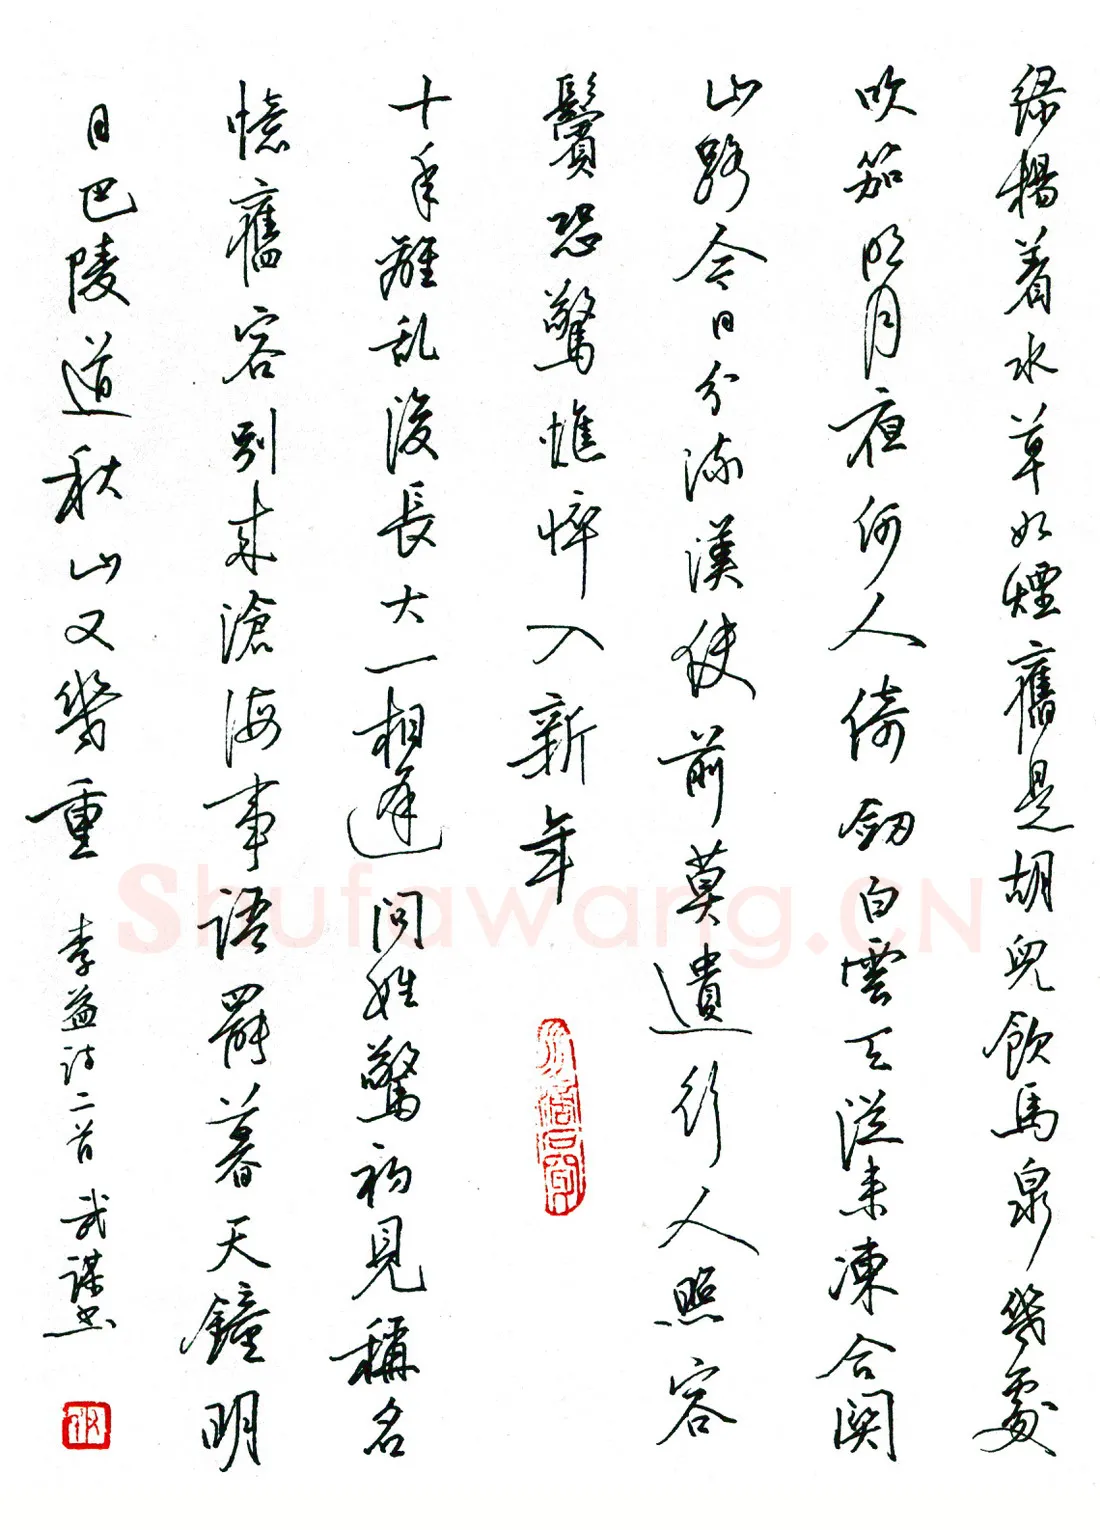 绿楊着水草如煙舊是胡兒飲馬泉幾處
吹笳明月夜何人倚劒白雲天從来凍合関
山路今日分流漢使前莫遣行人照容
鬢恐驚憔悴入新年
十年離乱後長大一相逢問姓驚初見稱名
憶舊容別来滄海事語罷暮天鐘明
日巴陵道秋山又幾重
李益诗二首 武謀书
Shufawang.CN